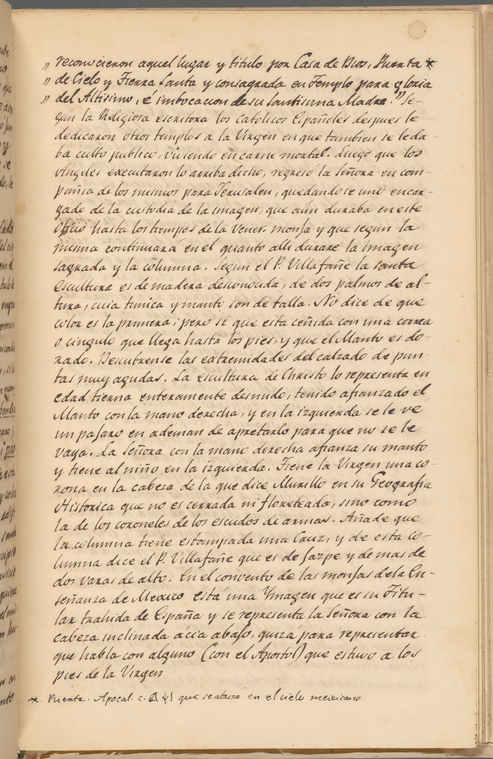 „ reconocieron aquel lugar y titulo por Casa de Dios, Puenta *
„ de Cielo y Tierra Santa y consagrada en Templo para gloria
„ del Altisimo, e imbocacion de su Santissima Madre." Se-
gun la Religiosa escritora los Catolicos Españoles despues le
dedicaron otros templos a la Virgen en que tambien se le da-
ba culto publico, viviendo en carne mortal. Luego que los
Angeles executaron lo arriba dicho, regreso la Señora en com-
pañia de los mismos para Jerusalen, quedandose uno encar-
gado de la custodia de la Imagen, que aun duraba en este
oficio hasta los tiempos de la Vener. monja y que segun la
misma continuara en el quanto alli durare la Imagen
sagrada y la columna. Segun el P. Villafañe la santa
escultura es de madera desconocida, de dos palmos de al-
tura, cuia tunica y manto son de talla. No dice de que
color es la primera; pero si que esta ceñida con una correa
o cingulo que llega hasta los pies, y que el Manto es do-
rado. Descubrense las extremidades del calzado de pun-
tas muy agudas. La escultura de Christo lo representa en
edad tierna enteramente desnudo, tenido afianzado el
Manto con la mano derecha, y en la izquierda se le ve
un pajaro en ademan de apretarlo para que no se le
vaya. La Señora con la mano derecha afianza su manto
y tiene al niño en la izquierda. Tiene la Virgen una co-
rona en la cabeza de la que dice Murillo en su Geografia
Historica que no es cerrada ni floreteada, sino como
la de los coroneles de los escudos de armas. Añade que
la columna tiene estampada una Cruz, y de esta co-
lumna dice el P. Villafañe que es de Jazpe y de mas de
dos varas de alto. En el convento de las monjas de la En-
señanza de Mexico esta una Imagen que es su Titu-
lar trahida de España y se representa la Señora con la
cabeza inclinada acia abajo, quiza para representar
que habla con alguno (con el Apostol) que estuvo a los
pies de la Virgen
*. Puenta. Apocal. c. que se abrira en el cielo mexicano